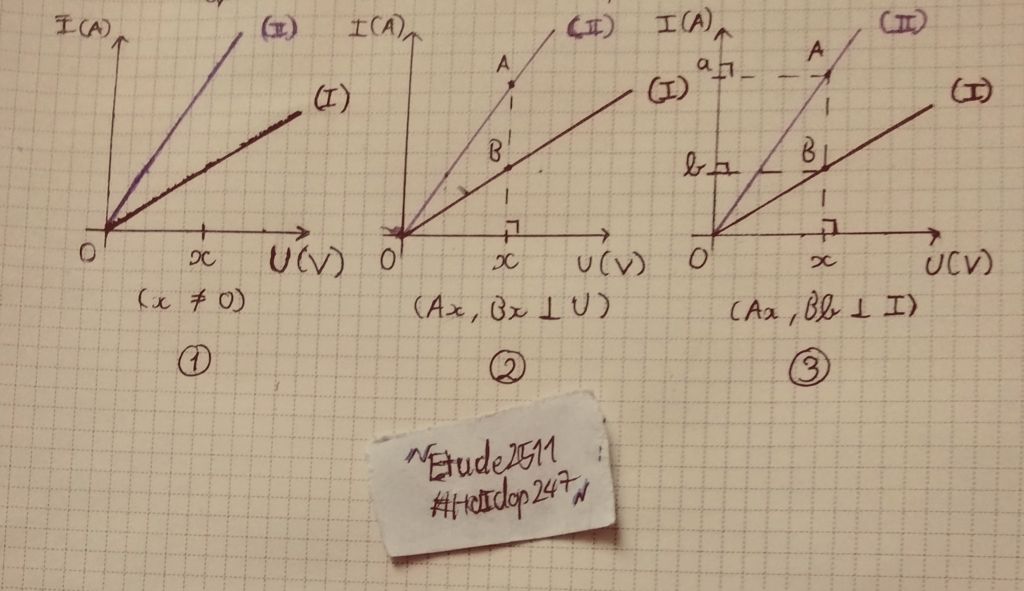 I(A) (II) (I) O x U(V)
(x ≠ 0)
①
I(A) (II) A (I) B O x U(V)
(Ax, Bx ⊥ U)
②
I(A) (II) a A (I) b B O x U(V)
(Ax, Bb ⊥ I)
③
"Etude2511